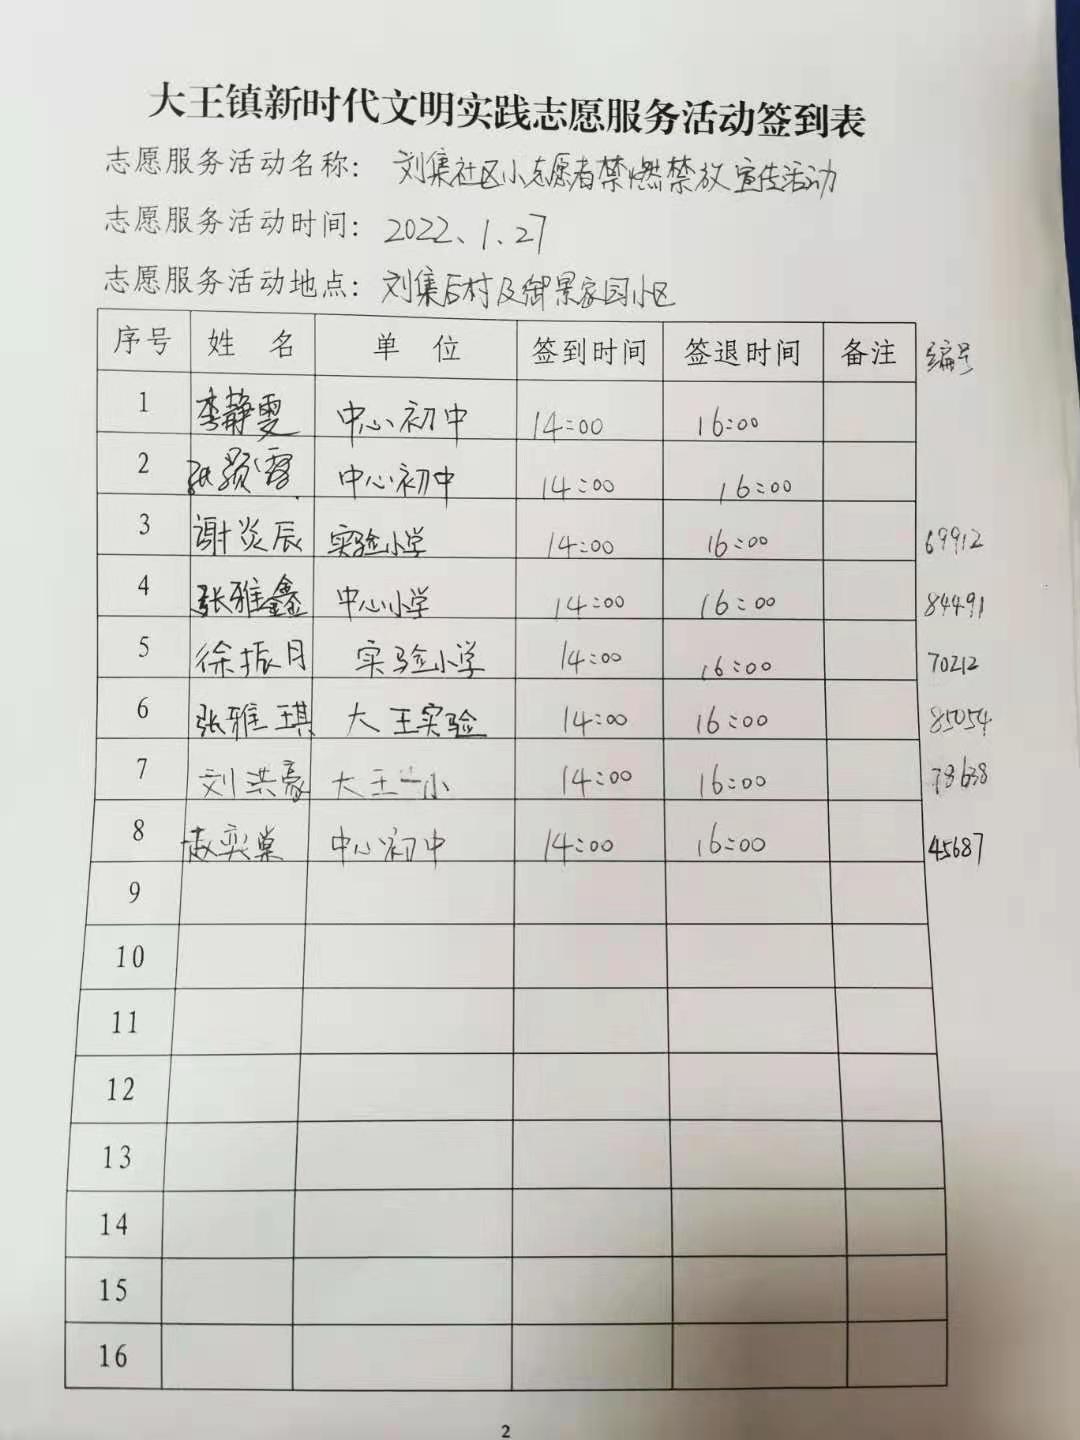 大王镇新时代文明实践志愿服务活动签到表
志愿服务活动名称: 刘集社区小志愿者禁燃禁放宣传活动
志愿服务活动时间: 2022、1、27
志愿服务活动地点: 刘集后村及御景家园小区
序号 姓名 单位 签到时间 签退时间 备注 编号
1 李静雯 中心初中 14:00 16:00
2 中心初中 14:00 16:00
3 谢炎辰 实验小学 14:00 16:00 69912
4 张雅鑫 中心小学 14:00 16:00 84491
5 徐振月 实验小学 14:00 16:00 70212
6 张雅琪 大王实验 14:00 16:00 85054
7 刘洪豪 大王一小 14:00 16:00 78638
8 中心初中 14:00 16:00 45687
9
10
11
12
13
14
15
16
2